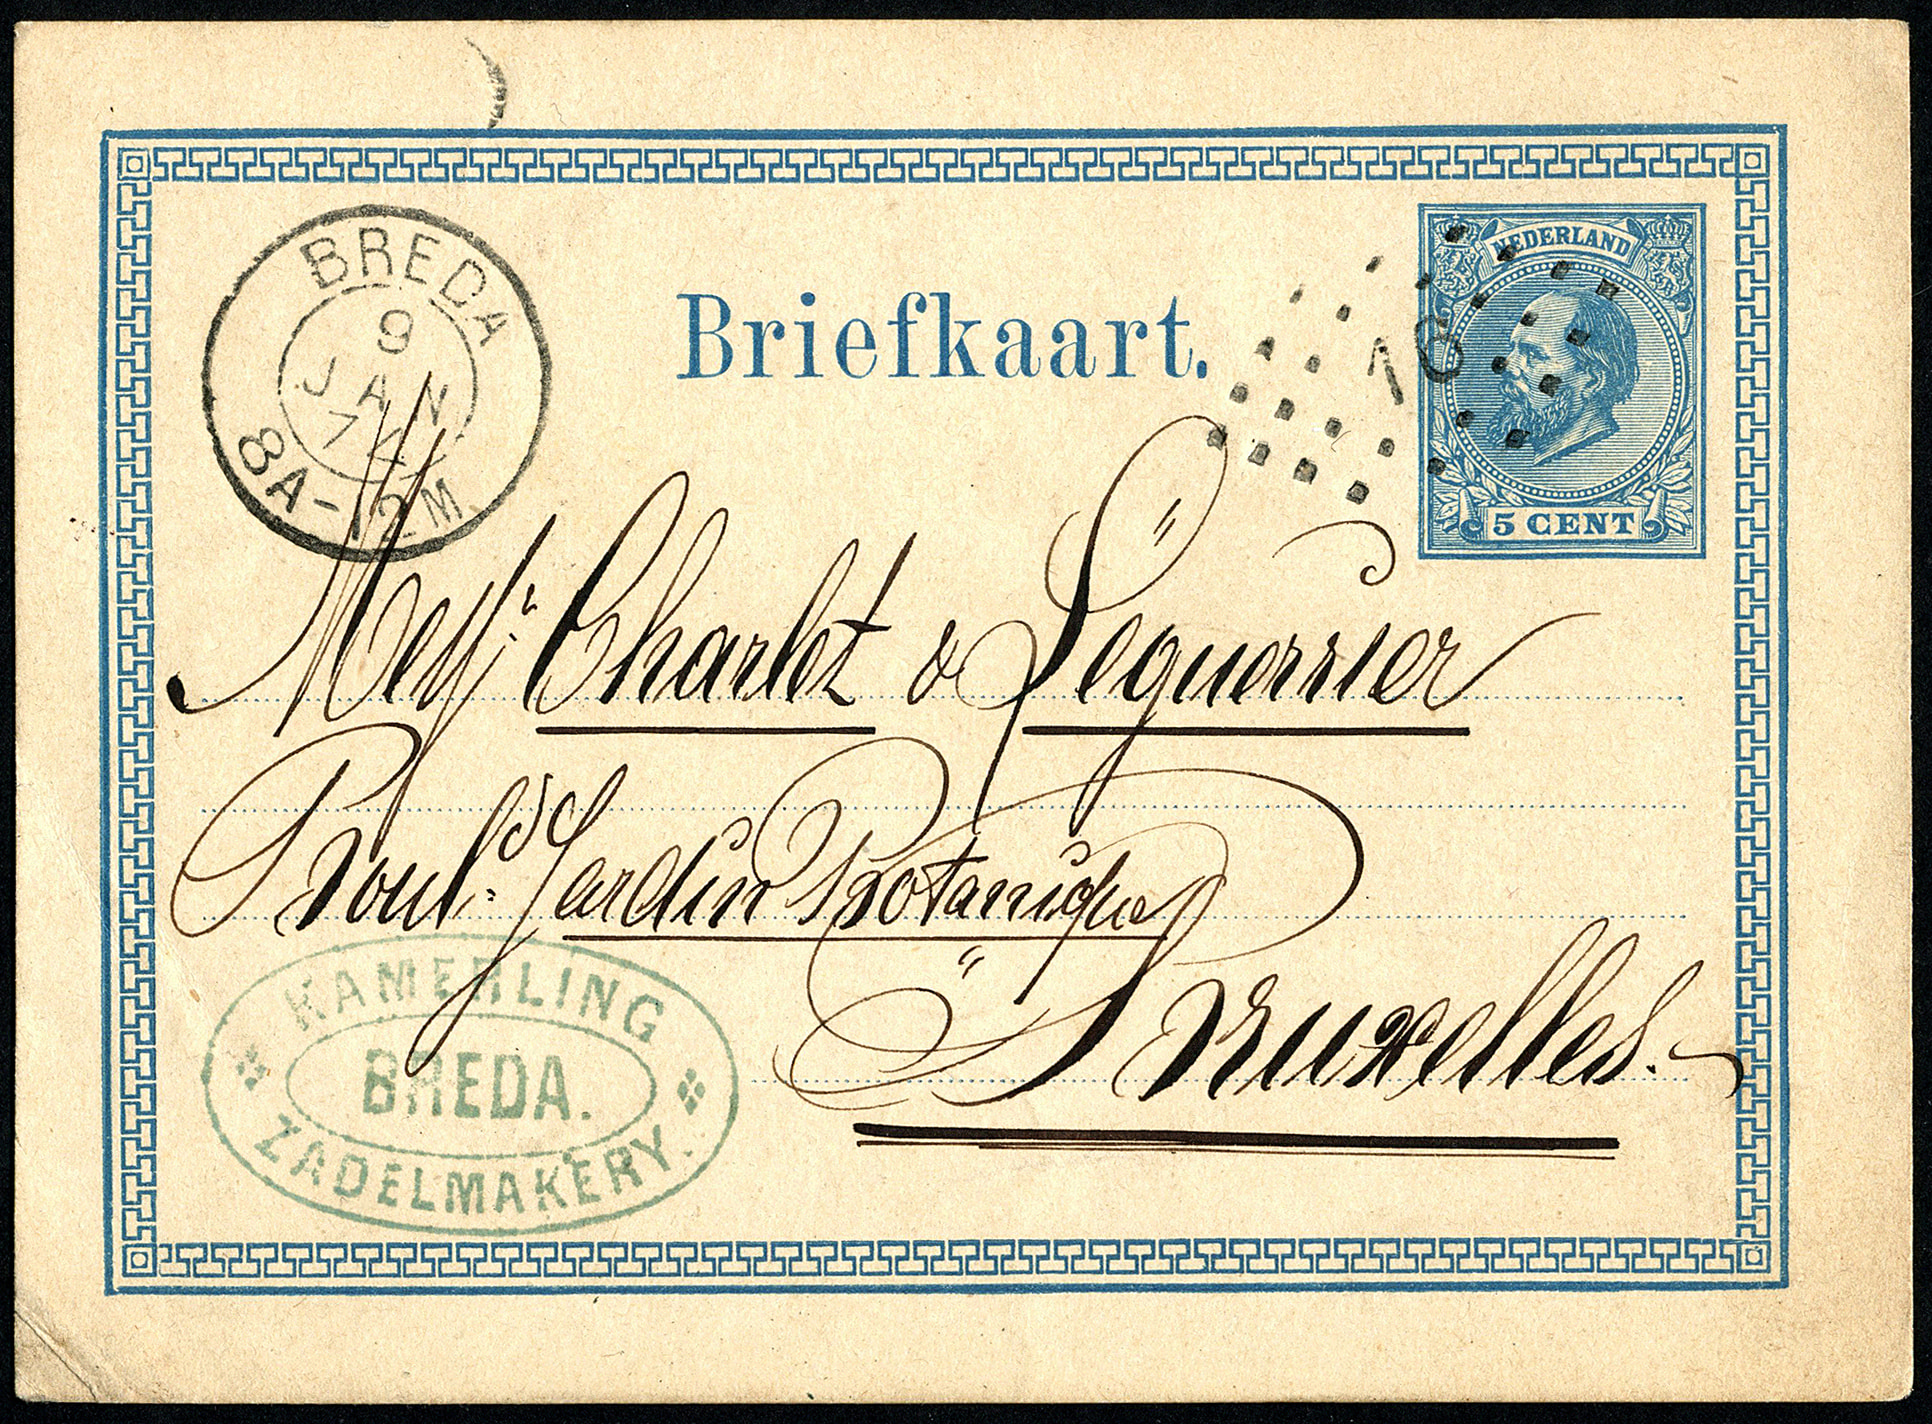 NEDERLAND
BREDA
9
JAN
8A-12M
Briefkaart.
16
5 CENT
Mess: Charlet & Lequerrier
Boul:d Jardin Botanique
Bruxelles.
KAMERLING
BREDA.
ZADELMAKERY.